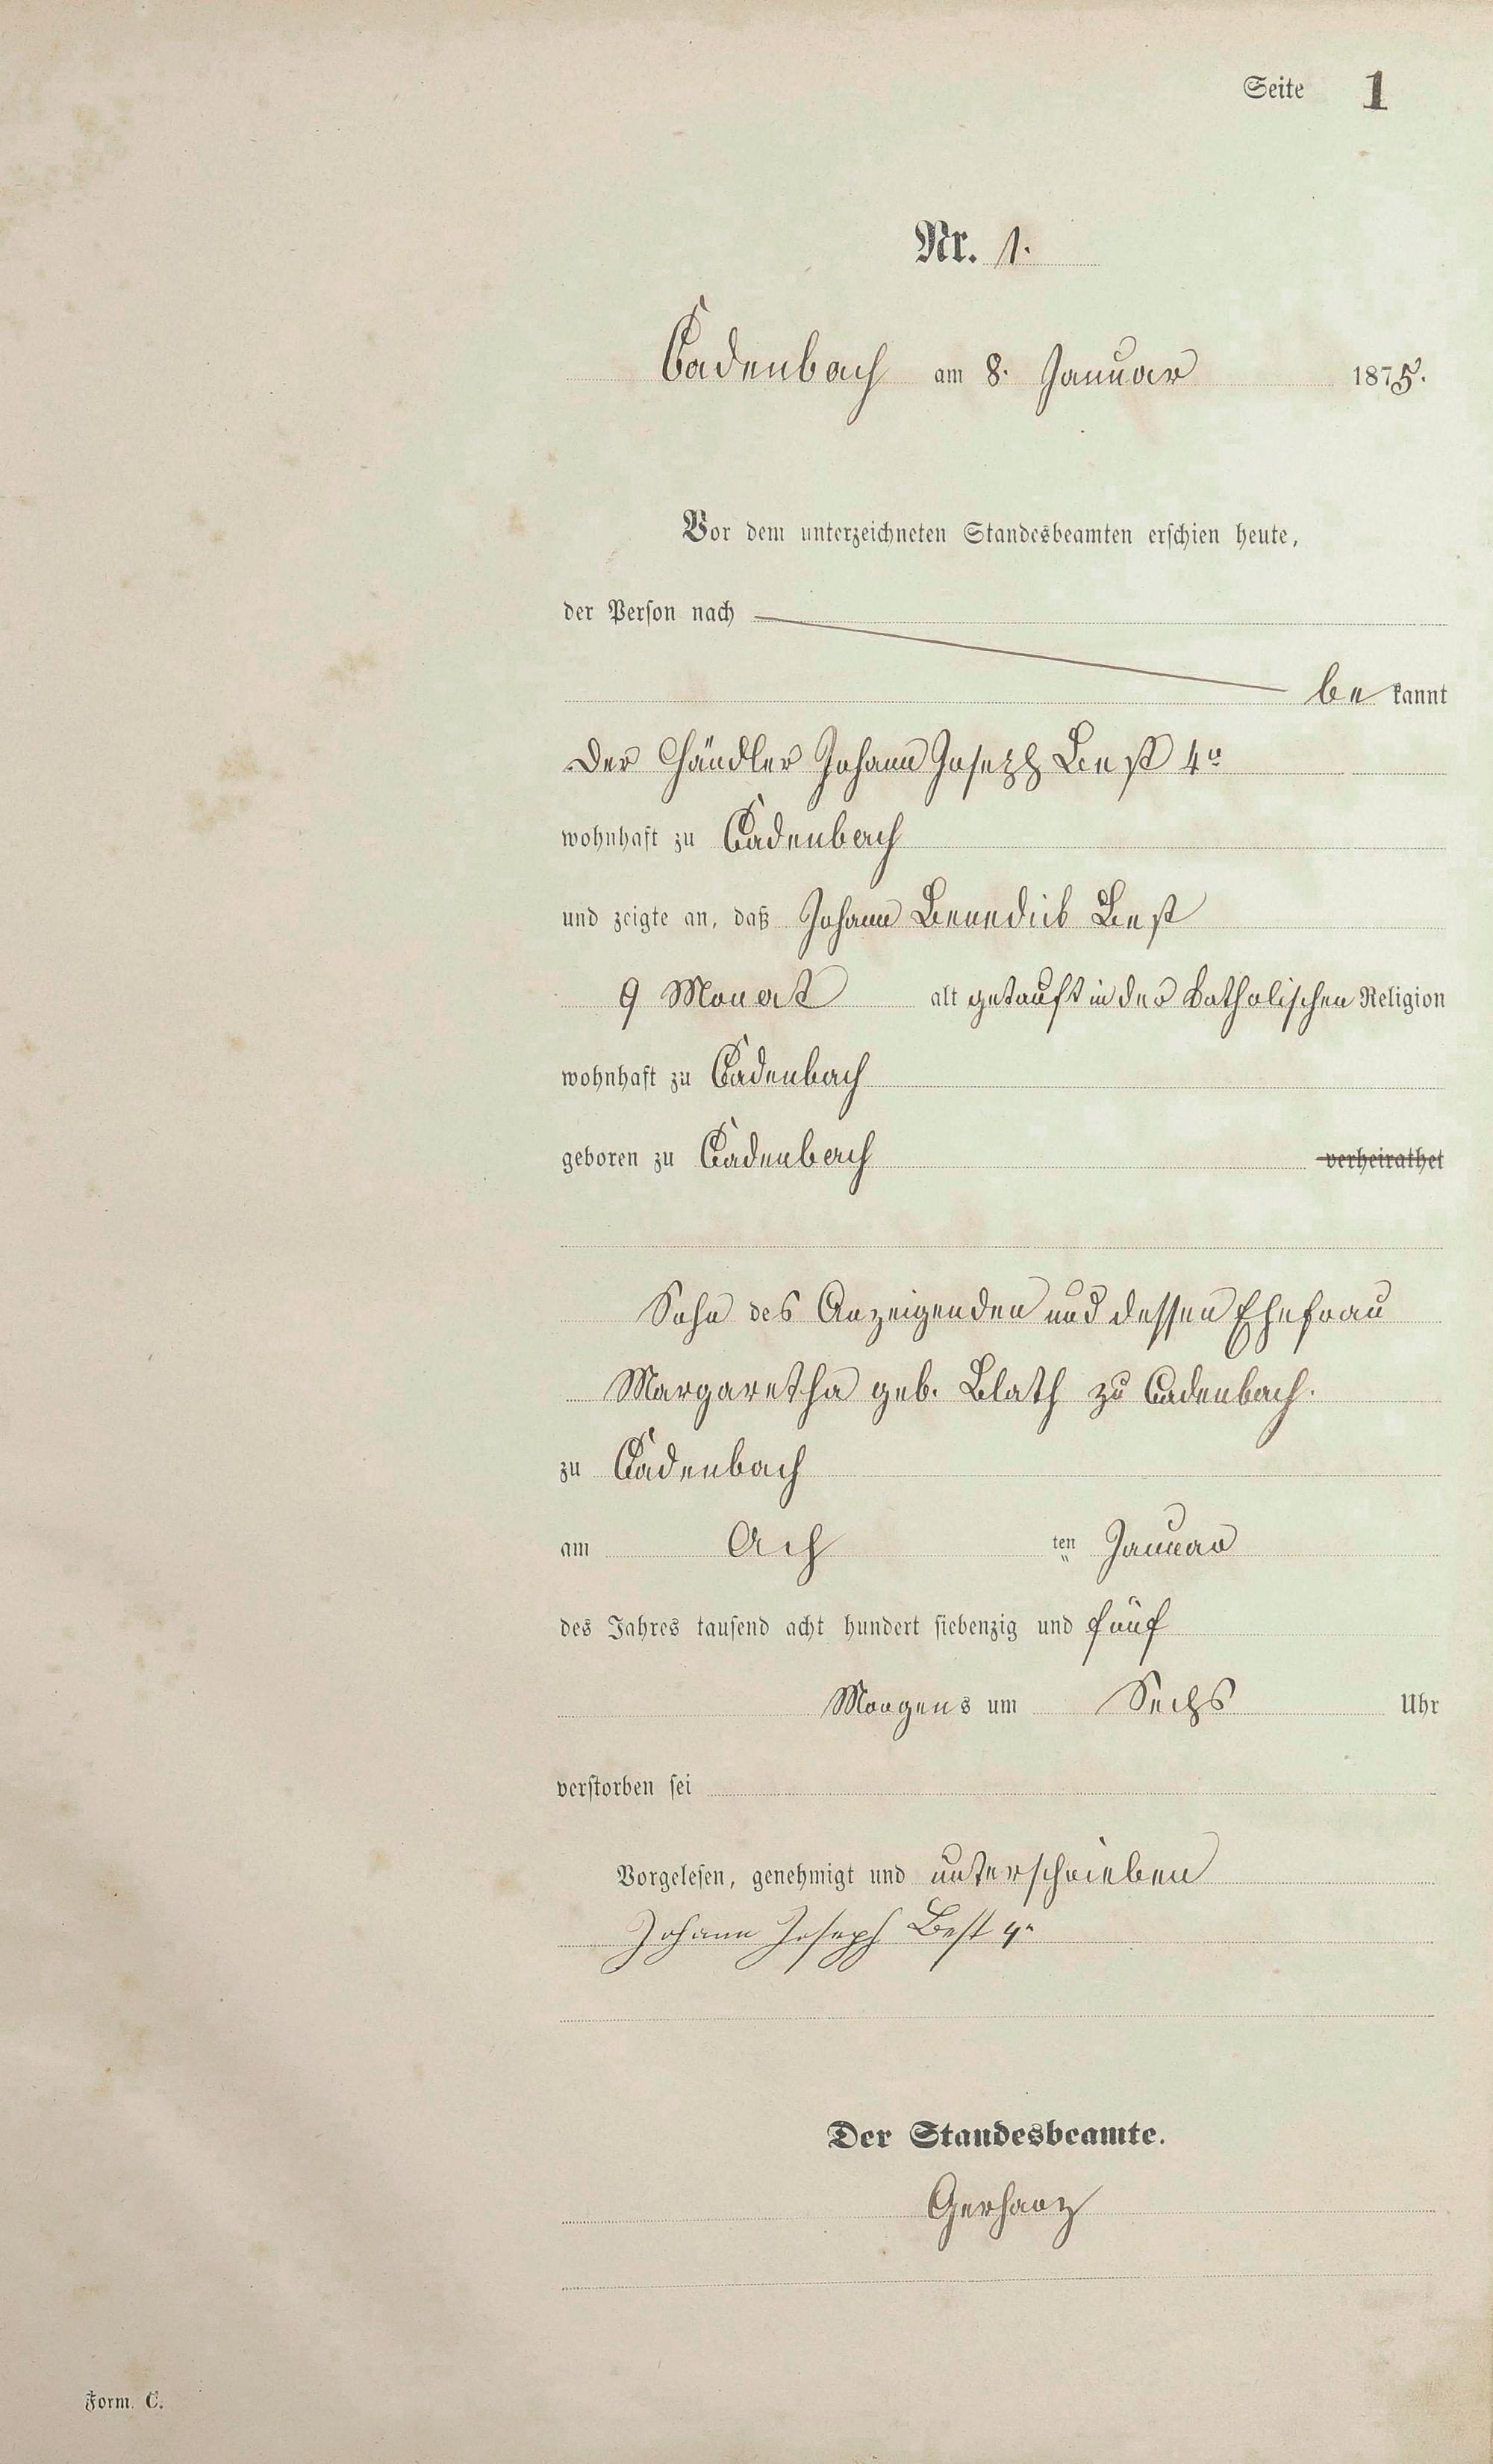 Seite 1
Nr. 1.
Cadenbach am 8. Januar 1875.
Vor dem unterzeichneten Standesbeamten erschien heute,
der Person nach
be kannt
der Händler Johann Joseph Best 4r
wohnhaft zu Cadenbach
und zeigte an, daß Johann Benedict Best
9 Monat alt getauft in der katholischen Religion
wohnhaft zu Cadenbach
geboren zu Cadenbach verheirathet
Sohn des Anzeigenden und dessen Ehefrau
Margaretha geb. Blath zu Cadenbach.
zu Cadenbach
am Ach ten Januar
des Jahres tausend acht hundert siebenzig und fünf
Morgens um Sechs Uhr
verstorben sei
Vorgelesen, genehmigt und unterschrieben
Johann Joseph Best 4r
Der Standesbeamte.
Gerharz
Form. C.